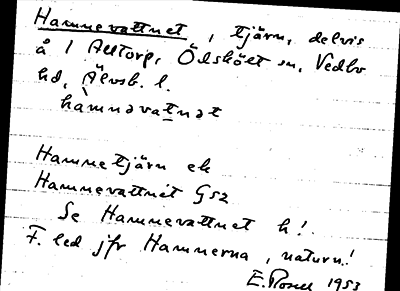 Hamnevattnet, tjärn, delvis
å 1 Alltorp, Ödskölt sn, Vedbo
hd, Älvsb. l.
hàmnəvatnət
Hamnetjärn ek
Hamnevattnet Gs2
Se Hamnevattnet h!
F. led jfr Hamnerna, naturn!
E. Rosell 1953